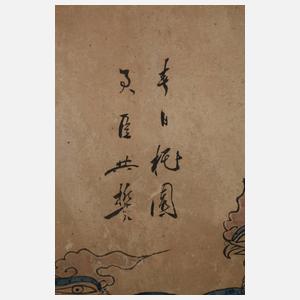 春日桃園
君臣共樂